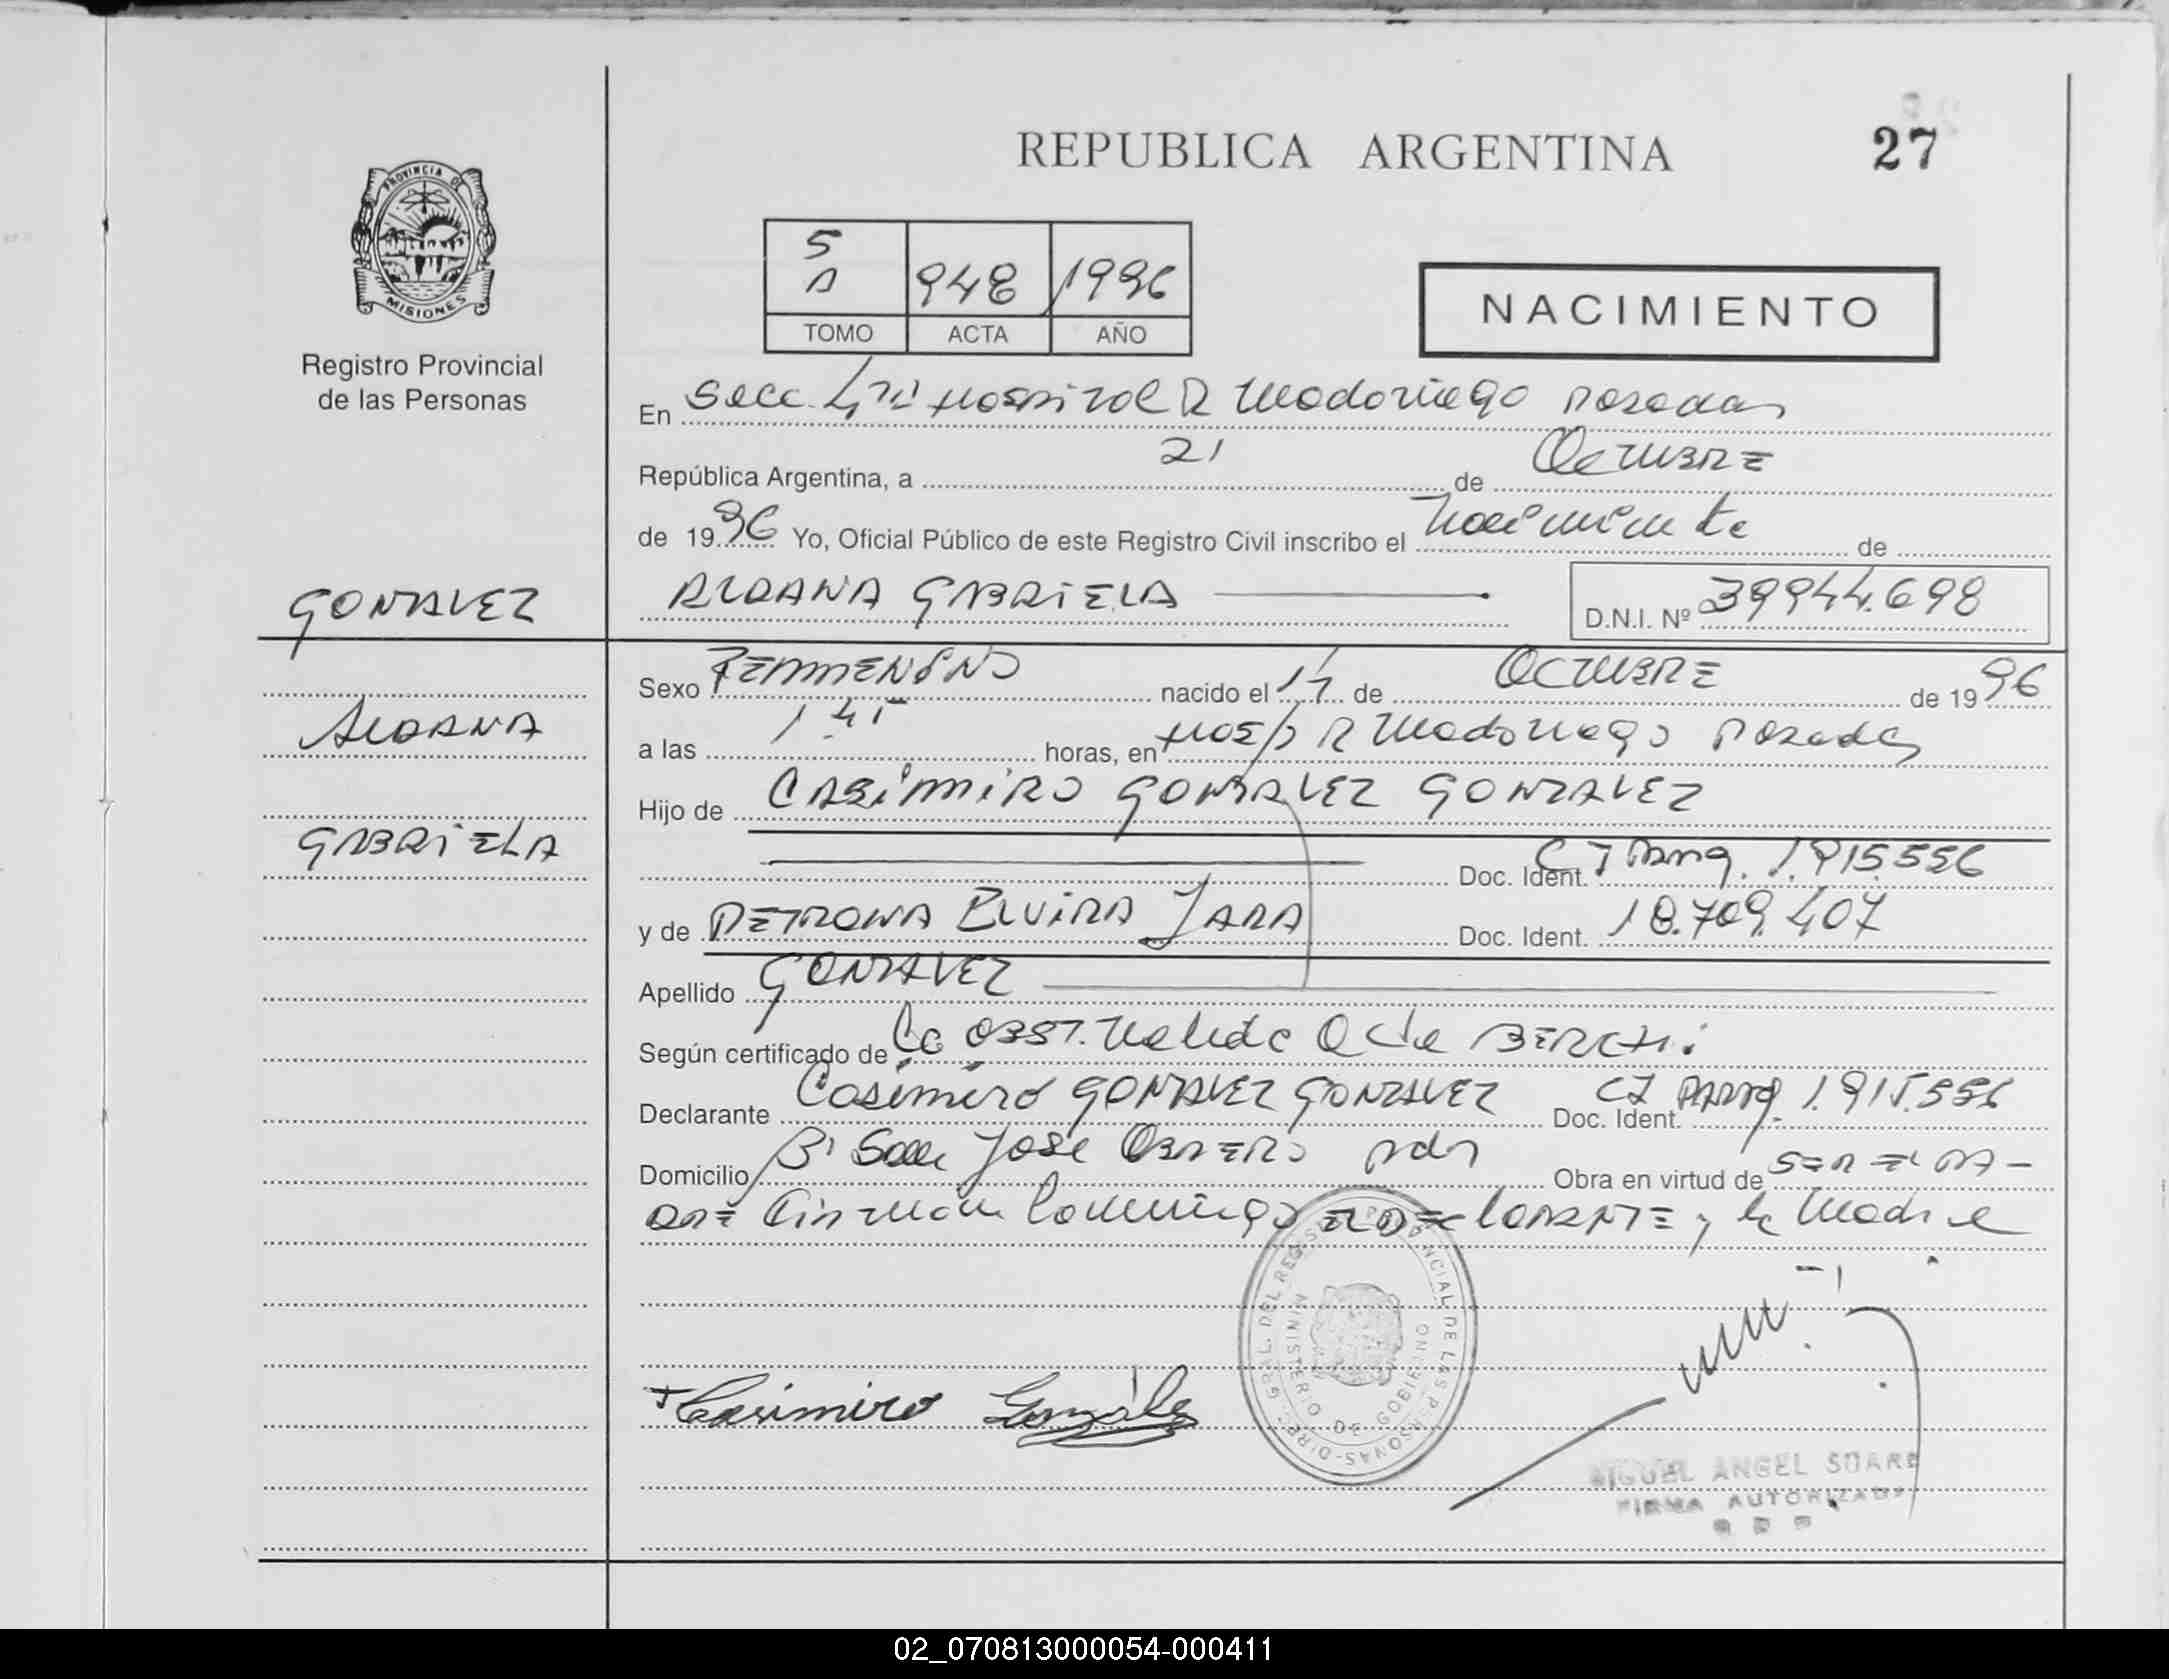 REPUBLICA ARGENTINA
27
PROVINCIA DE
MISIONES
Registro Provincial
de las Personas
5
A
948
1996
TOMO
ACTA
AÑO
NACIMIENTO
En Secc. 4ta Hospital R Madariaga Posadas
República Argentina, a 21 de Octubre
de 1996 Yo, Oficial Público de este Registro Civil inscribo el Nacimiento de
GONZALEZ
ALDANA GABRIELA
D.N.I. Nº 39944.698
Sexo FEMMENINO nacido el 17 de OCTUBRE de 1996
ALDANA
a las horas, en Hosp R Madariaga Posadas
Hijo de CASIMIRO GONZALEZ GONZALEZ
GABRIELA
Doc. Ident. CI Parag. 1.915.556
y de PETRONA ELVIRA JARA Doc. Ident. 18.709.407
Apellido GONZALEZ
Según certificado de OBST. BERCHI
Declarante Casimiro GONZALEZ GONZALEZ Doc. Ident. CI PARAG. 1.915.556
Domicilio Bº San José OBRERO Pdas Obra en virtud de SER EL PA-
DRE DECLARANTE y la Madre
DIREC. GRAL. DEL REGISTRO PROVINCIAL DE LAS PERSONAS
MINISTERIO DE GOBIERNO
Casimiro González
MIGUEL ANGEL SUARE
FIRMA AUTORIZADA
02_070813000054-000411